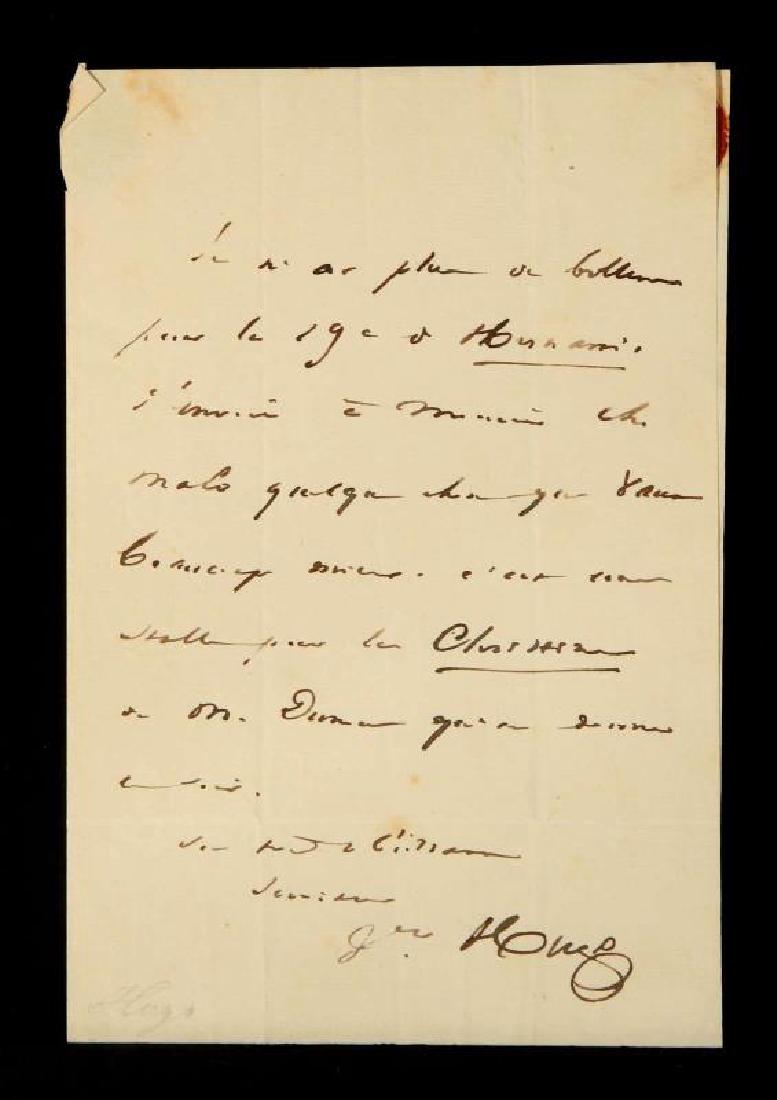 Je n'ai plus de billets
pour la 19e d'Hernani.
J'envoie à Monsieur Ch.
Malo quelque chose qui vaut
beaucoup mieux. c'est une
stalle pour la Christine
de M. Dumas qu'on donne
ce soir.
Son
serviteur
Hugo
Hugo